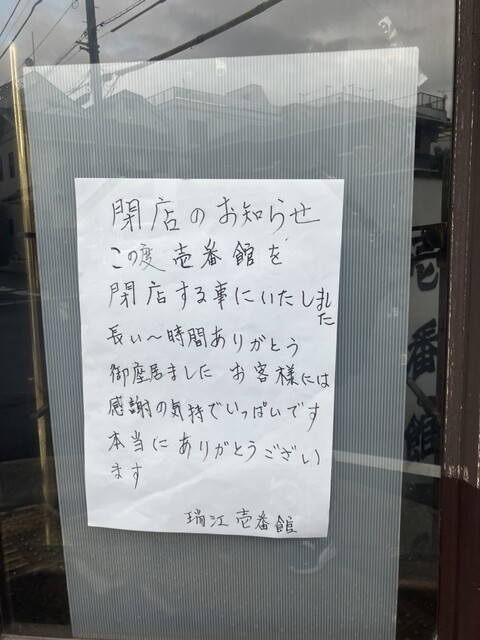 閉店のお知らせ
この度壱番館を
閉店する事にいたしました
長い〜時間ありがとう
御座居ました お客様には
感謝の気持でいっぱいです
本当にありがとうござい
ます
瑞江壱番館
壱番館